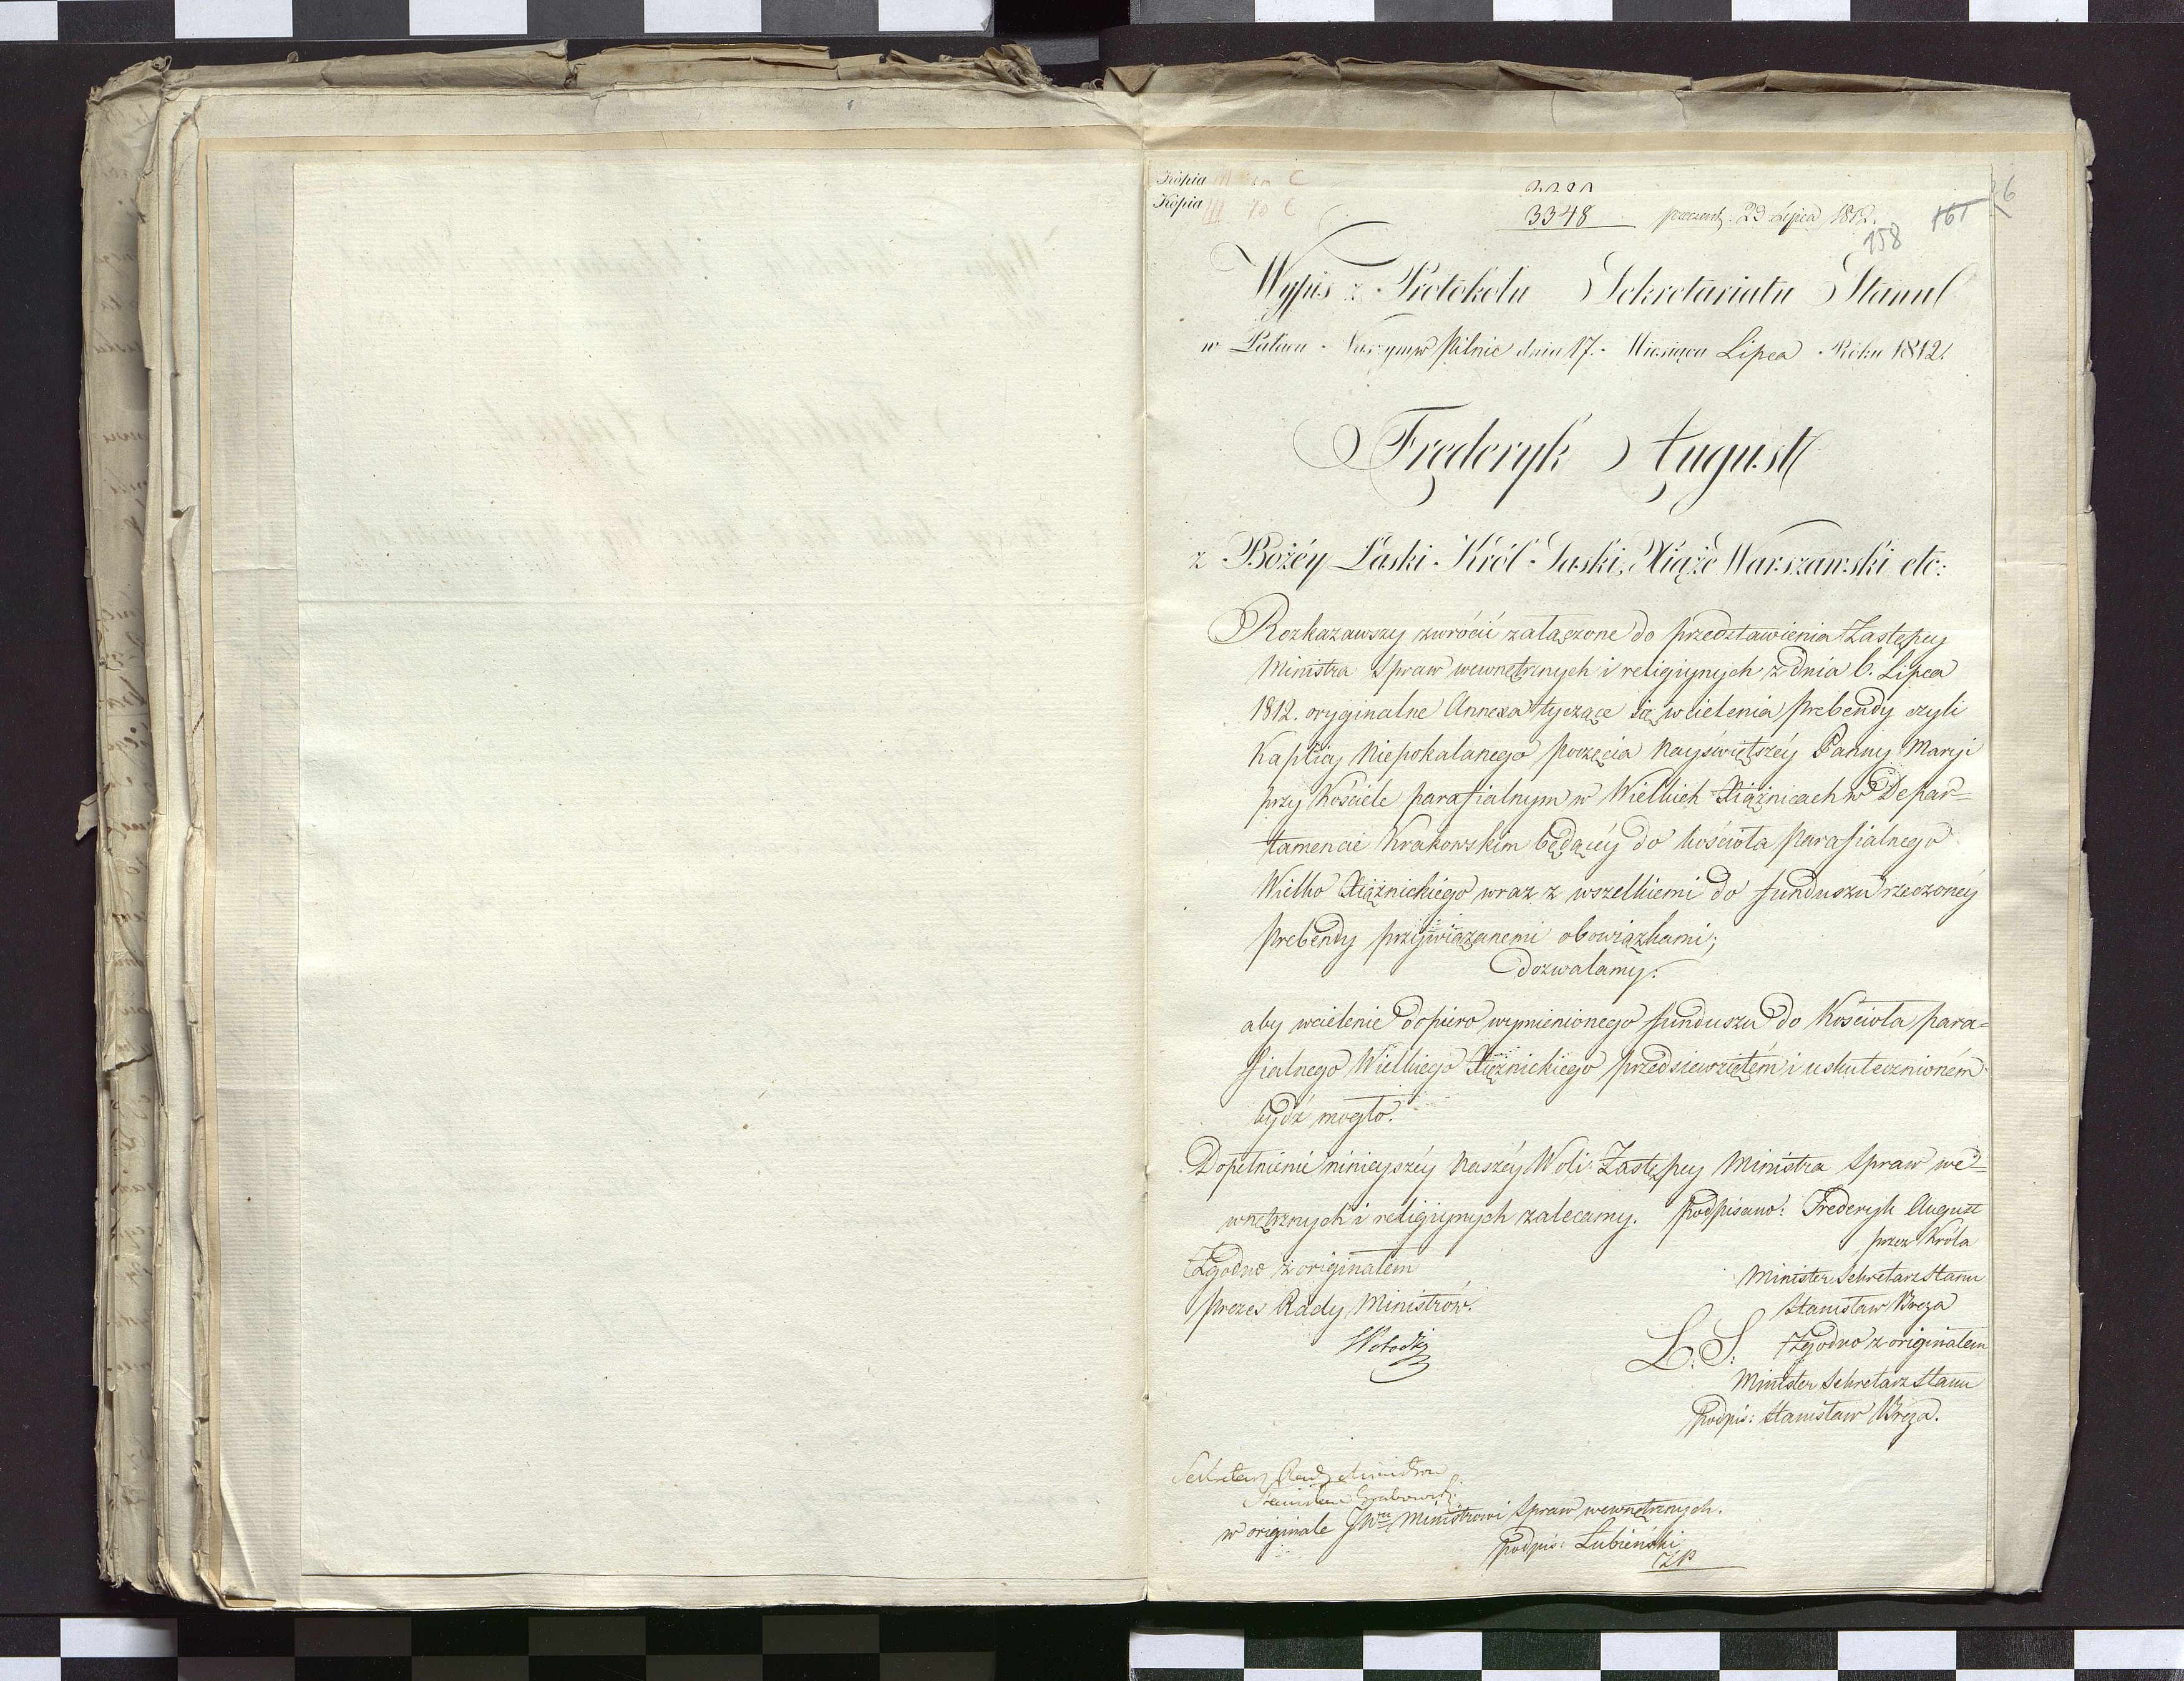 Kópia C
Kópia III 40 C
3348 prezent: 23 Lipca 1812. 161 26
158
Wypis z Protokołu Sekretariatu Stanu
w Pałacu Naszym w Pilnic dnia 17. Miesiąca Lipca Roku 1812.
Fręderyk August
z Bożéy Łaski Król Saski, Xiąże Warszawski etc:
Rozkazawszy zwrócić załączone do przedstawienia Zastępcy
Ministra Spraw wewnętrznych i religijnych z dnia 6. Lipca
1812. oryginalne Annexa tyczące się wcielenia prebendy czyli
Kaplicy Niepokalanego poczęcia Nayświętszéy Panny Maryi
przy Kościele parafialnym w Wielkich Xiążnicach w Depar=
tamencie Krakowskim będącéy do kościoła parafialnego
Wielko Xiążnickiego wraz z wszelkiemi do funduszu rzeczonéy
prebendy przywiązanemi obowiązkami;
dozwalamy:
aby wcielenie dopiero wymienionego funduszu do Kościoła para=
fialnego Wielkiego Xiężnickiego przedsiewziętém i uskutecznioném
bydź mogło.
Dopełnienie ninieyszéy Naszéy Woli Zastępcy Ministra Spraw we=
wnętrznych i religijnych zalecamy. podpisano: Frederyk August
przez Króla
Zgodno z originałem
Minister Sekretarz Stanu
Prezes Rady Ministrów.
Stanisław Breza
L. S. Zgodno z originałem
Minister Sekretarz Stanu
podpis: Stanisław Breza.
Sekretarz Rady Ministrów
Stanisław Grabowski.
w originale JWu Ministrowi Spraw wewnętrznych.
podpis: Łubieński
ZP